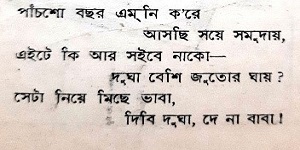 পাঁচশো বছর এম্‌নি ক'রে
আসছি সয়ে সমুদায়,
এইটে কি আর সইবে নাকো—
দু'ঘা বেশি জুতোর ঘায় ?
সেটা নিয়ে মিছে ভাবা,
দিবি দু'ঘা, দে না বাবা !